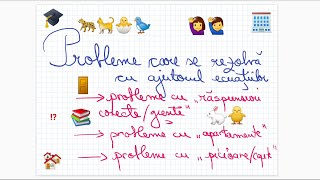 Probleme care se rezolvă
cu ajutorul ecuațiilor
→ probleme cu „răspunsuri
corecte/greșite"
→ probleme cu „apartamente"
→ probleme cu „picioare/capete"